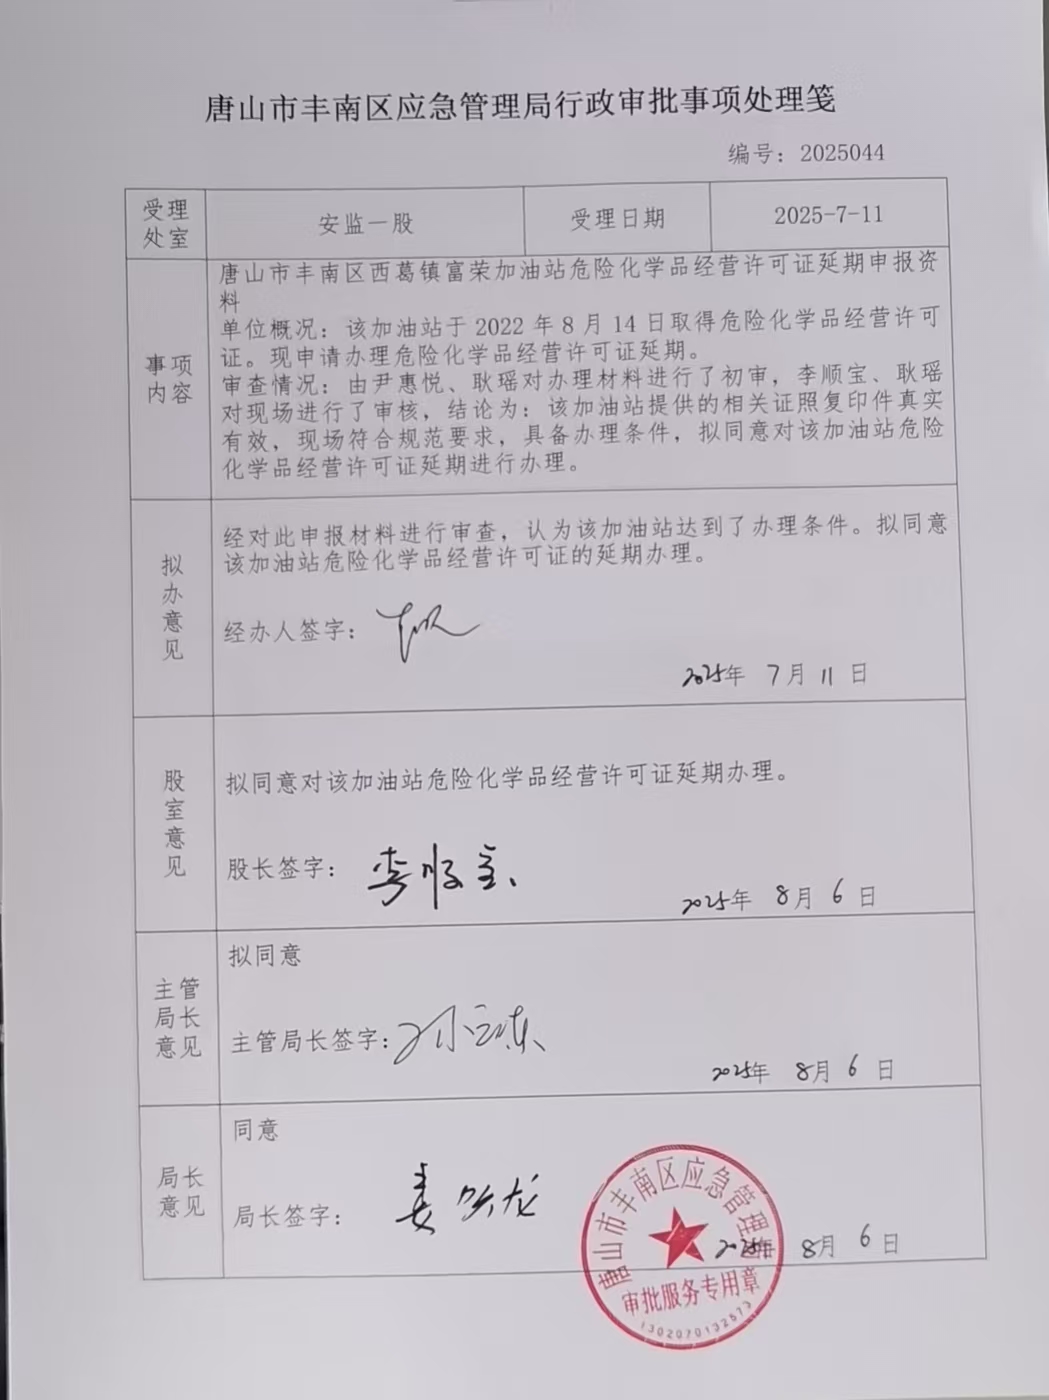 唐山市丰南区应急管理局行政审批事项处理笺
编号：2025044
受理处室
安监一股
受理日期
2025-7-11
事项内容
唐山市丰南区西葛镇富荣加油站危险化学品经营许可证延期申报资
料
单位概况：该加油站于 2022 年 8 月 14 日取得危险化学品经营许可
证。现申请办理危险化学品经营许可证延期。
审查情况：由尹惠悦、耿瑶对办理材料进行了初审，李顺宝、耿瑶
对现场进行了审核，结论为：该加油站提供的相关证照复印件真实
有效，现场符合规范要求，具备办理条件，拟同意对该加油站危险
化学品经营许可证延期进行办理。
拟办意见
经对此申报材料进行审查，认为该加油站达到了办理条件。拟同意
该加油站危险化学品经营许可证的延期办理。
经办人签字：
2025年 7月 11 日
股室意见
拟同意对该加油站危险化学品经营许可证延期办理。
股长签字： 李顺宝
2025年 8月 6日
主管局长意见
拟同意
主管局长签字：
2025年 8月 6日
局长意见
同意
局长签字：
2025年 8月 6日
唐山市丰南区应急管理局
审批服务专用章